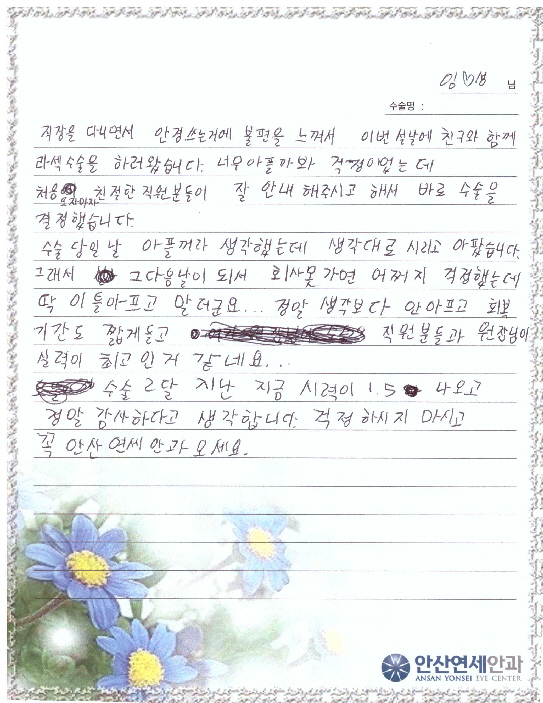 임♡생 님
수술명 :
직장을 다니면서 안경쓰는거에 불편을 느껴서 이번 설날에 친구와 함께
라섹수술을 하러왔습니다. 너무아플까봐 걱정이었는데
처음 오자마자 친절한 직원분들이 잘 안내 해주시고 해서 바로 수술을
결정했습니다.
수술 당일 날 아플꺼라 생각했는데 생각대로 시리고 아팠습니다.
그래서 그다음날이 되서 회사못가면 어쩌지 걱정했는데
딱 이틀아프고 말더군요... 정말 생각보다 안아프고 회복
기간도 짧게들고 직원분들과 원장님이
실력이 최고 인거 같네요..
수술 2달 지난 지금 시력이 1.5 나오고
정말 감사하다고 생각합니다. 걱정하시지 마시고
꼭 안산연세안과 오세요.
안산연세안과
ANSAN YONSEI EYE CENTER